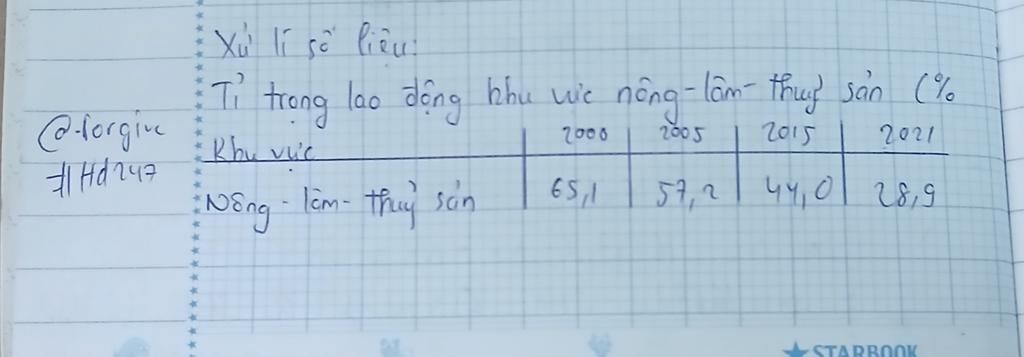 Xử lí số liệu:
Tỉ trọng lao động khu vực nông-lâm-thuỷ sản (%
@forgive
#Hd247
Khu vực 2000 2005 2015 2021
Nông-lâm-thuỷ sản 65,1 57,2 44,0 28,9
STARBOOK